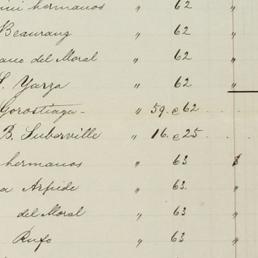 hermanos " 62 "
Beaurang " 62 "
ano del Moral " 62 "
S. Yarza " 62 "
Gorostiaga " 59. e 62
B. Luberville " 16. e 25
hermanos " 63 "
a Arfide " 63. "
del Moral " 63 "
Rufo " 63 "